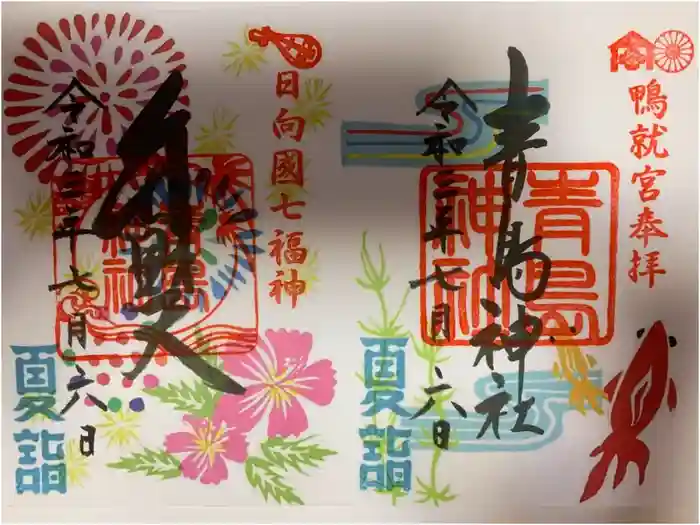 鴨就宮奉拝
青島神社
青島神社
令和三年七月六日
夏詣
日向國七福神
弁財天
令和三年七月六日
夏詣